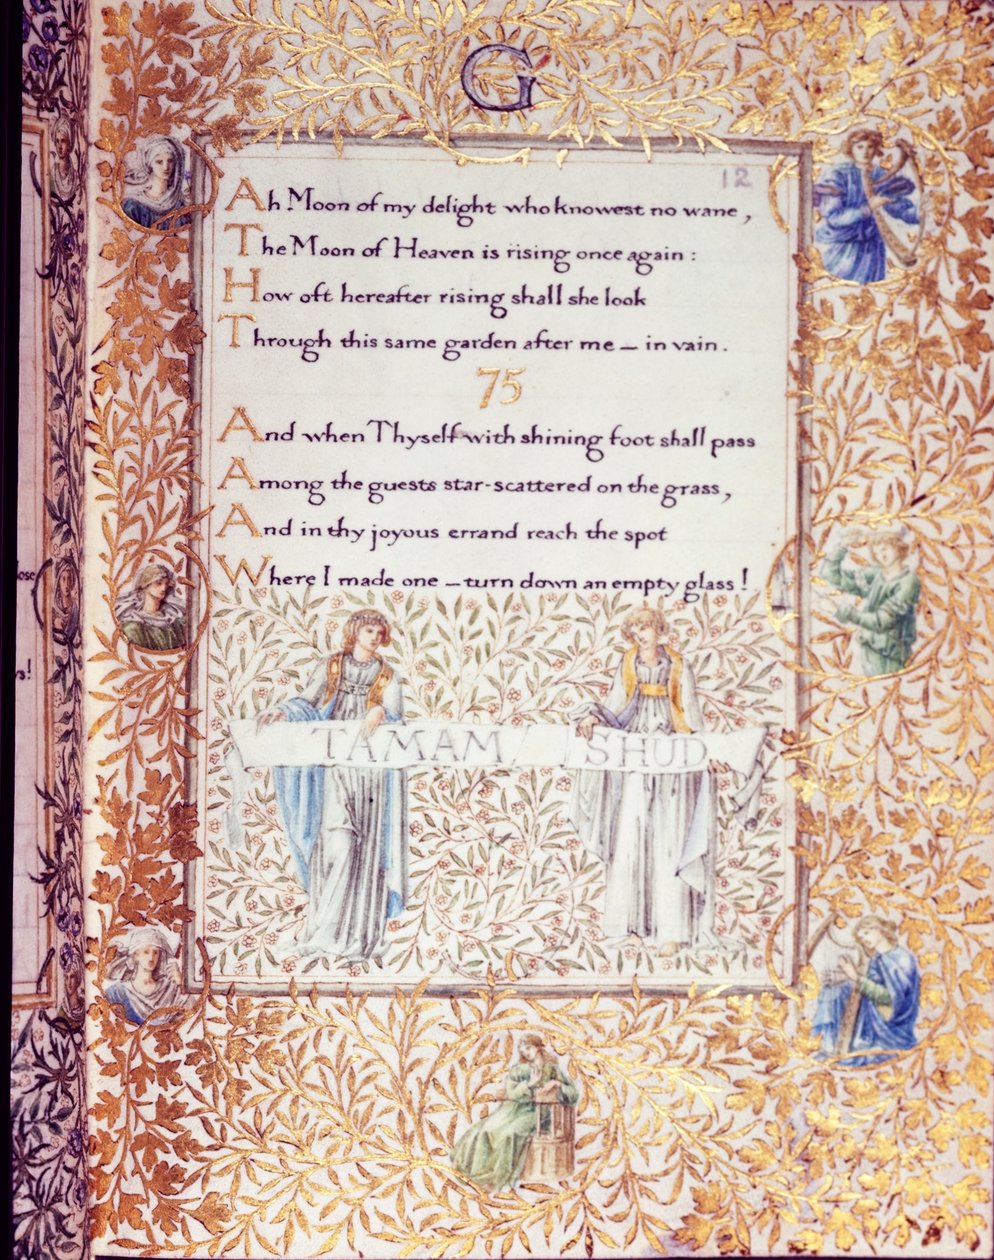 G
12
Ah Moon of my delight who knowest no wane,
The Moon of Heaven is rising once again:
How oft hereafter rising shall she look
Through this same garden after me – in vain.
75
And when Thyself with shining foot shall pass
Among the guests star-scattered on the grass,
And in thy joyous errand reach the spot
Where I made one – turn down an empty glass!
TAMAM SHUD